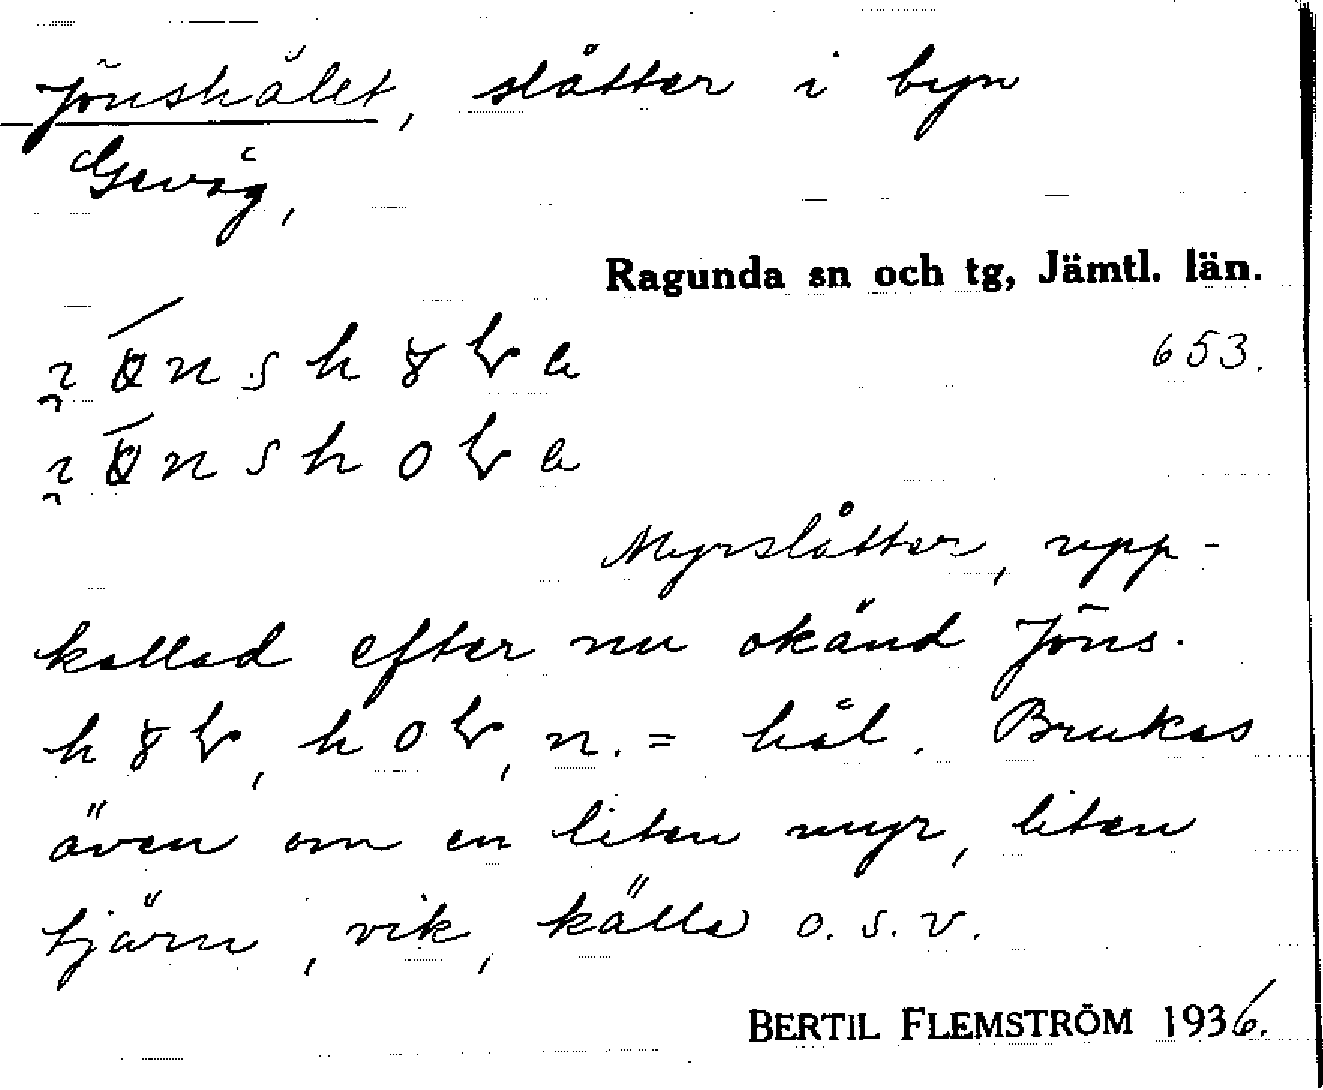 Jönshålet, slåtter i byn
Gevåg,
Ragunda sn och tg, Jämtl. län.
653.
Myrslåtter, upp-
kallad efter nu okänd Jöns.
n. = hål. Brukas
även om en liten myr, liten
tjärn, vik, källa o.s.v.
BERTIL FLEMSTRÖM 1936.